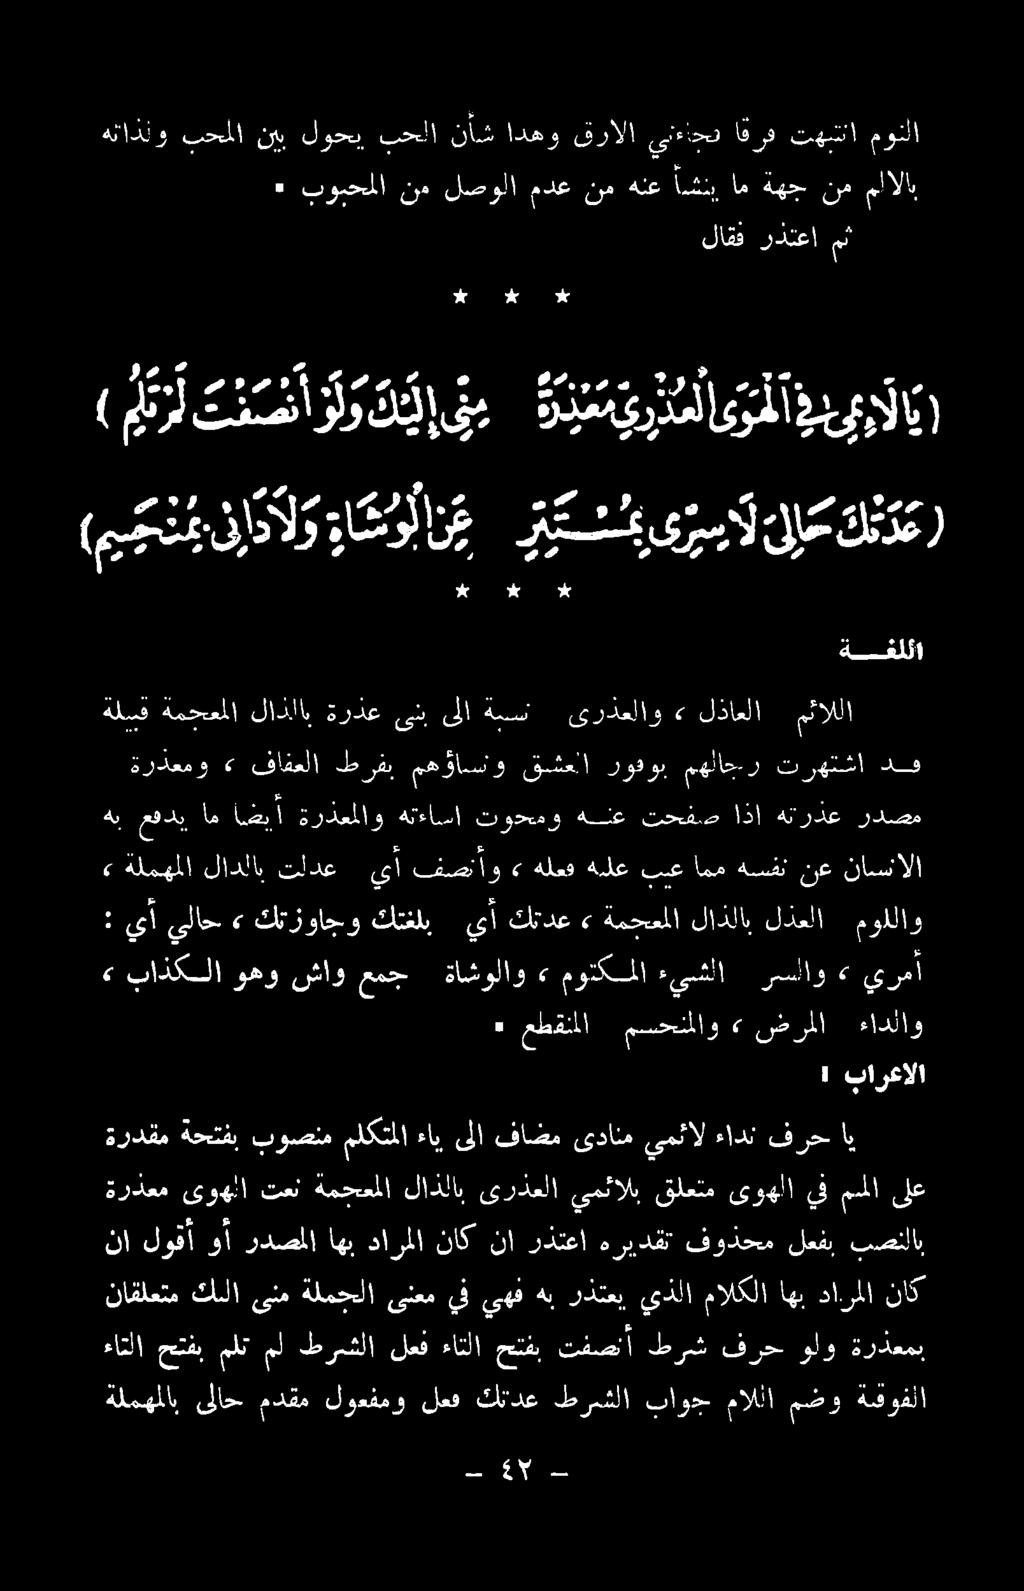 النوم انتبهت فرقا فجاءني الارق وهدا شأن الحب يحول بين المحب ولذاته
بالالم من جهة ما ينشأ عنه من عدم الوصل من المحبوب .
ثم اعتذر فقال
* * *
( يَالَائِمِي فِي الْهَوَى الْعُذْرِيِّ مَعْذِرَةً مِنِّي إِلَيْكَ وَلَوْ أَنْصَفْتَ لَمْ تَلُمِ )
( عَدَتْكَ حَالِيَ لَا سِرِّي بِمُسْتَتِرٍ عَنِ الْوُشَاةِ وَلَا دَائِي بِمُنْحَسِمِ )
* * *
اللغــة
اللائم العاذل ، والعذرى نسبة الى بنى عذرة بالذال المعجمة قبيلة
قــد اشتهرت رجالهم بوفور العشق ونساؤهم بفرط العفاف ، ومعذرة
مصدر عذرته اذا صفحت عنــه ومحوت اساءته والمعذرة أيضا ما يدفع به
الانسان عن نفسه مما عيب عليه فعله ، وأنصف أي عدلت بالدال المهملة ،
واللوم العذل بالذال المعجمة ، عدتك أي بلغتك وجاوزتك ، حالي أي :
أمري ، والسر الشيء المـكتوم ، والوشاة جمع واش وهو الـكذاب ،
والداء المرض ، والمنحسم المنقطع .
الاعراب :
يا حرف نداء لائمي منادى مضاف الى ياء المتكلم منصوب بفتحة مقدرة
على الميم في الهوى متعلق بلائمي العذرى بالذال المعجمة نعت الهوى معذرة
بالنصب بفعل محذوف تقديره اعتذر ان كان المراد بها المصدر أو أقول ان
كان المراد بها الكلام الذي يعتذر به فهي في معنى الجملة منى اليك متعلقان
بمعذرة ولو حرف شرط أنصفت بفتح التاء فعل الشرط لم تلم بفتح التاء
الفوقية وضم اللام جواب الشرط عدتك فعل ومفعول مقدم حالى بالمهملة
- ٤٢ -